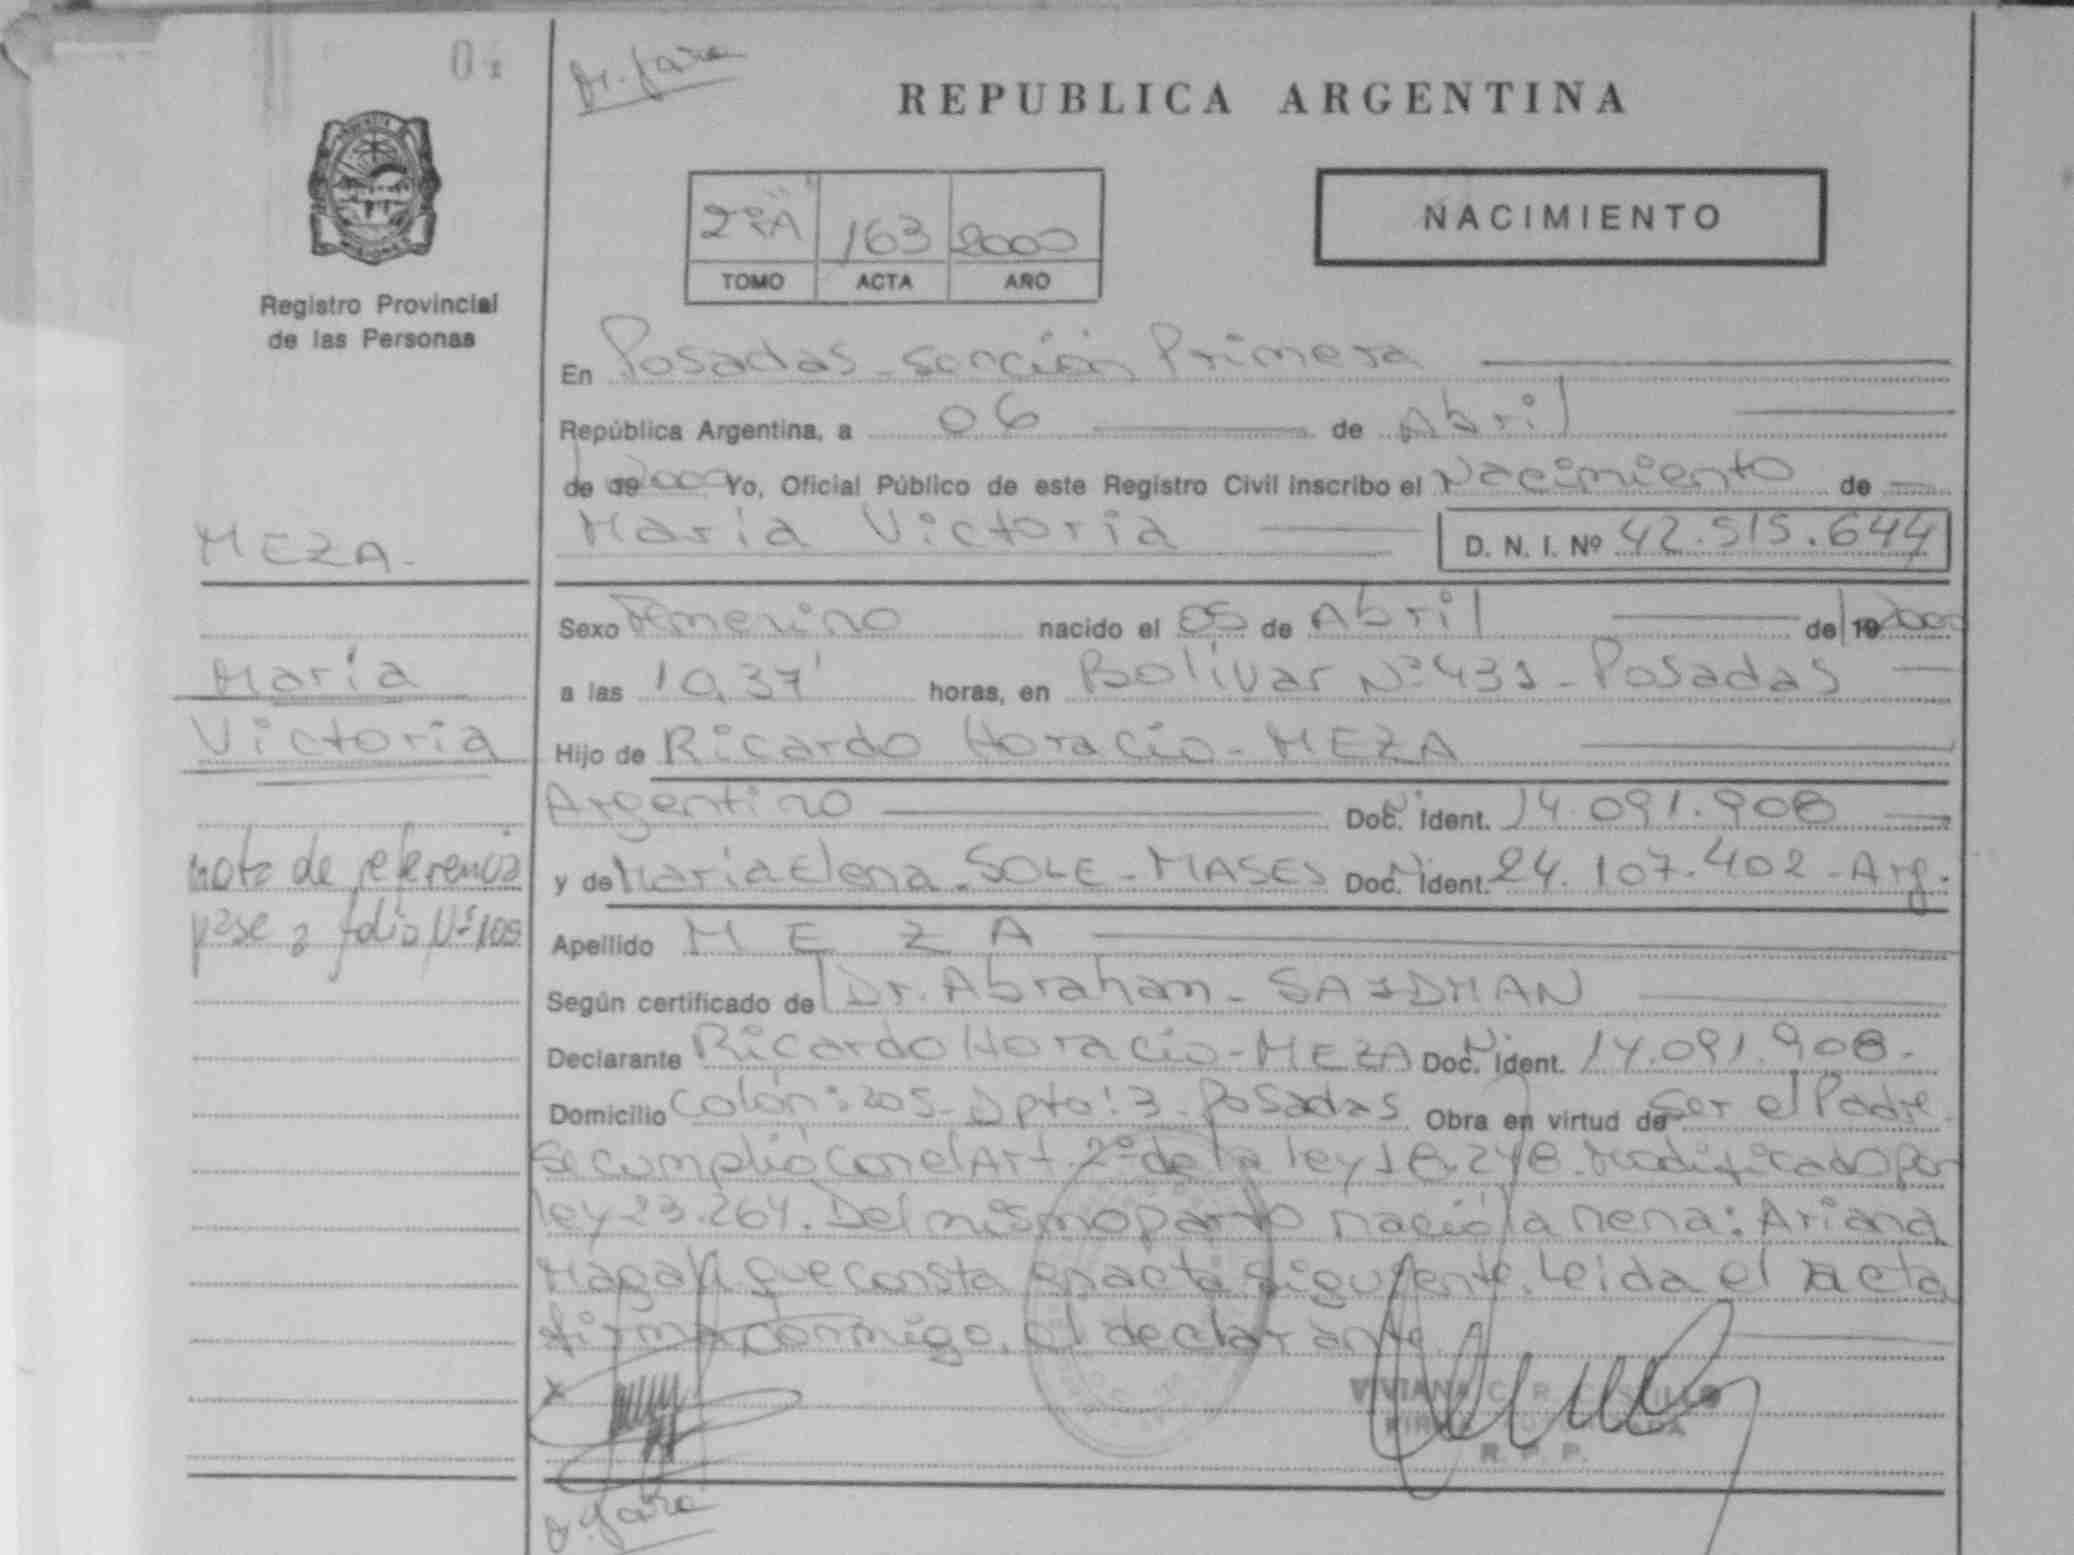 REPUBLICA ARGENTINA
Registro Provincial
de las Personas
2º "A" 163 2000
TOMO ACTA AÑO
NACIMIENTO
En Posadas - Sección Primera
República Argentina, a 06 de Abril
de 19 2000 Yo, Oficial Público de este Registro Civil inscribo el Nacimiento de
María Victoria D. N. I. Nº 42.515.644
MEZA.
María
Victoria
nota de referencia
pase a folio Nº 109
Sexo Femenino nacido el 05 de Abril de 19 2000
a las 10,37' horas, en Bolívar Nº 431 - Posadas
Hijo de Ricardo Horacio - MEZA
Argentino Doc. Ident. 14.091.908
y de María Elena - SOLE - MASES Doc. Ident. 24.107.402 - Arg.
Apellido MEZA
Según certificado de Dr. Abraham - SAIDMAN
Declarante Ricardo Horacio - MEZA Doc. Ident. 14.091.908.
Domicilio Colón: 205 - Dpto: 3 - Posadas Obra en virtud de Ser el Padre.
Se cumplió con el Art. 2º de la ley 18.248. Modificado por
ley 23.264. Del mismo parto nació la nena: Ariana
Magalí que consta en acta siguiente. Leida el acta
firma conmigo, el declarante.
VIVIANA C. R. CASTILLO
R. P. P.